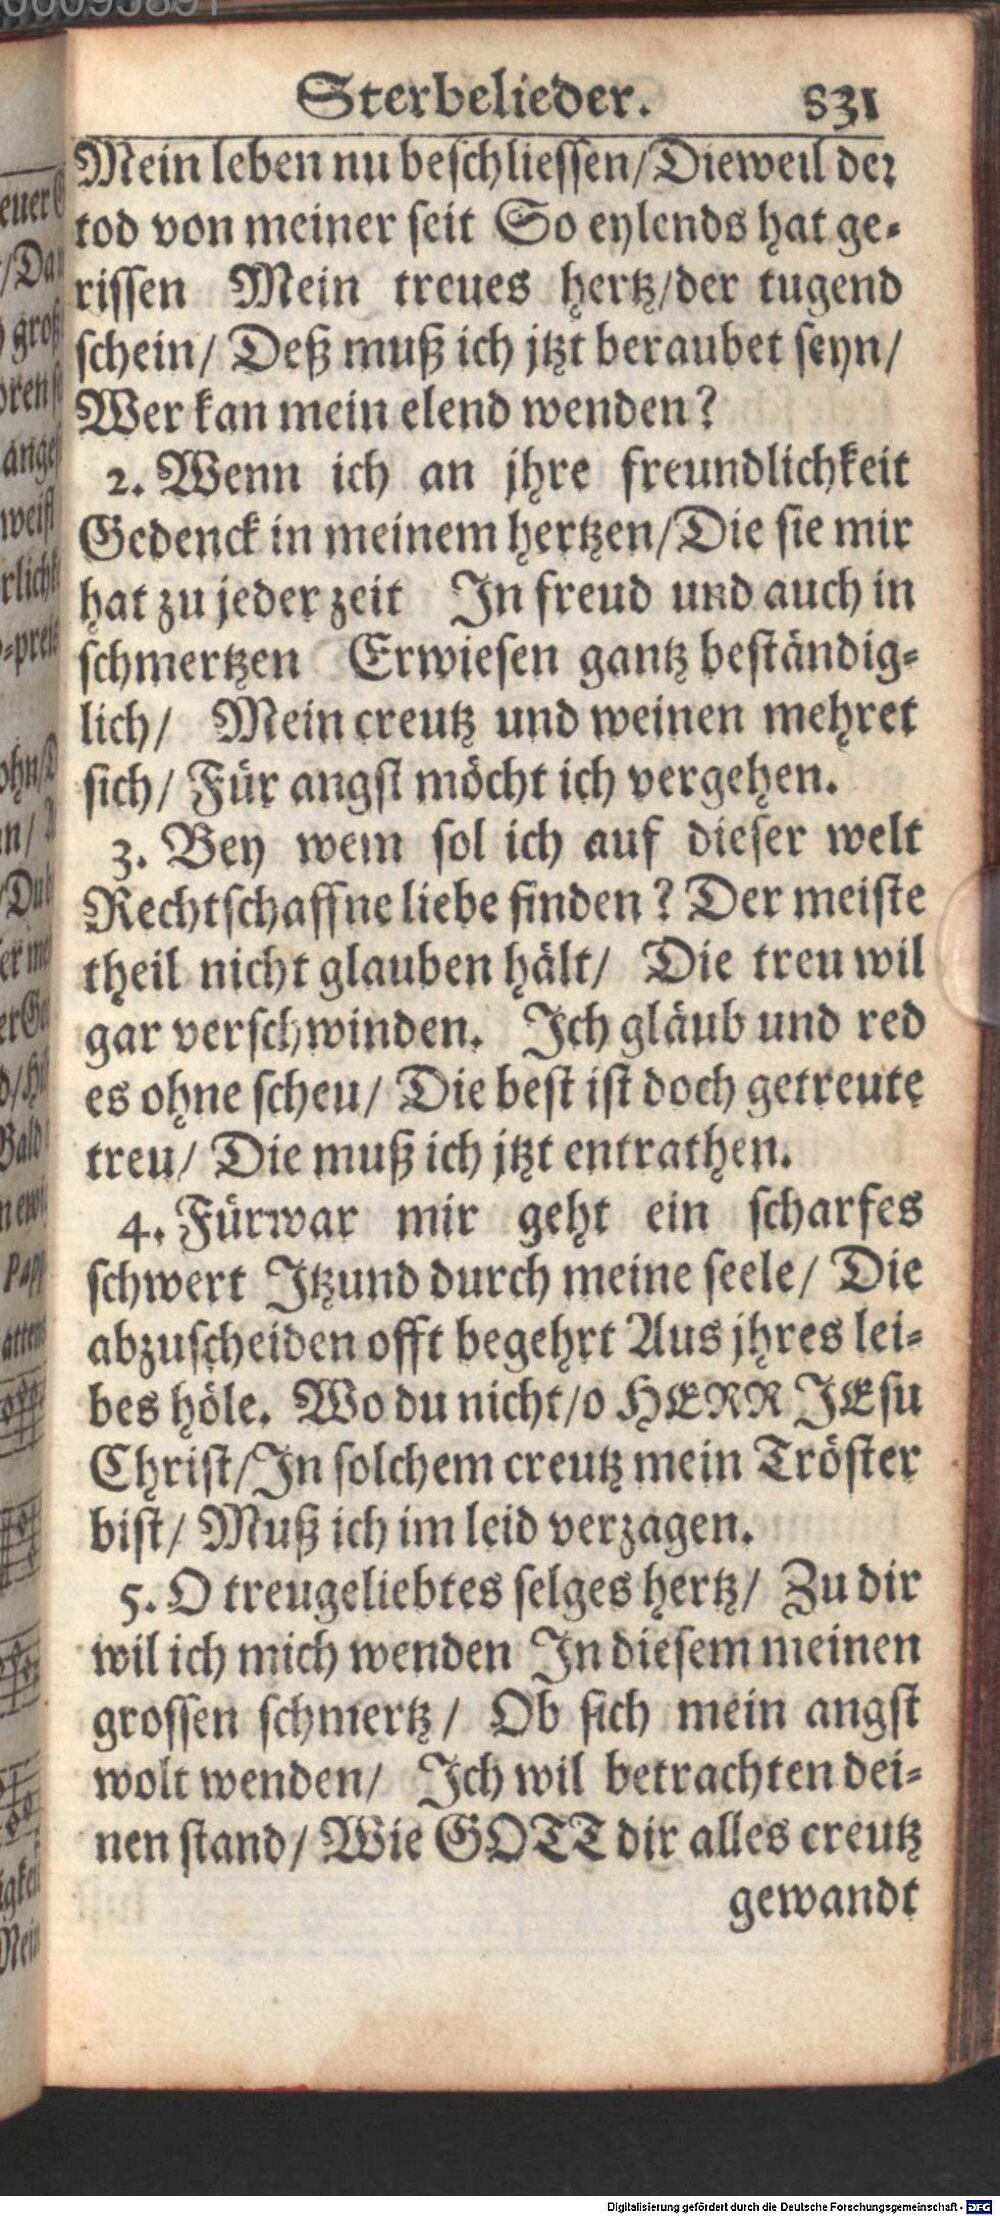 Sterbelieder. 831
Mein leben nu beschliessen/Dieweil der
tod von meiner seit So eylends hat ge-
rissen Mein treues hertz/der tugend
schein/ Deß muß ich jtzt beraubet seyn/
Wer kan mein elend wenden?
2. Wenn ich an jhre freundlichkeit
Gedenck in meinem hertzen/Die sie mir
hat zu jeder zeit In freud und auch in
schmertzen Erwiesen gantz beständig-
lich/ Mein creutz und weinen mehret
sich/ Für angst möcht ich vergehen.
3. Bey wem sol ich auf dieser welt
Rechtschaffne liebe finden? Der meiste
theil nicht glauben hält/ Die treu wil
gar verschwinden. Ich gläub und red
es ohne scheu/ Die best ist doch getreute
treu/ Die muß ich jtzt entrathen.
4. Fürwar mir geht ein scharfes
schwert Itzund durch meine seele/ Die
abzuscheiden offt begehrt Aus jhres lei-
bes höle. Wo du nicht/o HERR JEsu
Christ/In solchem creutz mein Tröster
bist/ Muß ich im leid verzagen.
5. O treugeliebtes selges hertz/ Zu dir
wil ich mich wenden In diesem meinen
grossen schmertz/ Ob sich mein angst
wolt wenden/ Ich wil betrachten dei-
nen stand/ Wie GOTT dir alles creutz
gewandt
Digitalisierung gefördert durch die Deutsche Forschungsgemeinschaft - DFG